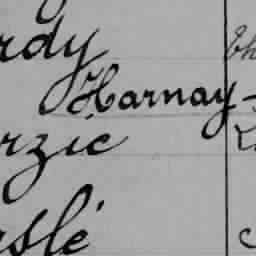 rdy
Harnay
rzić
rslé